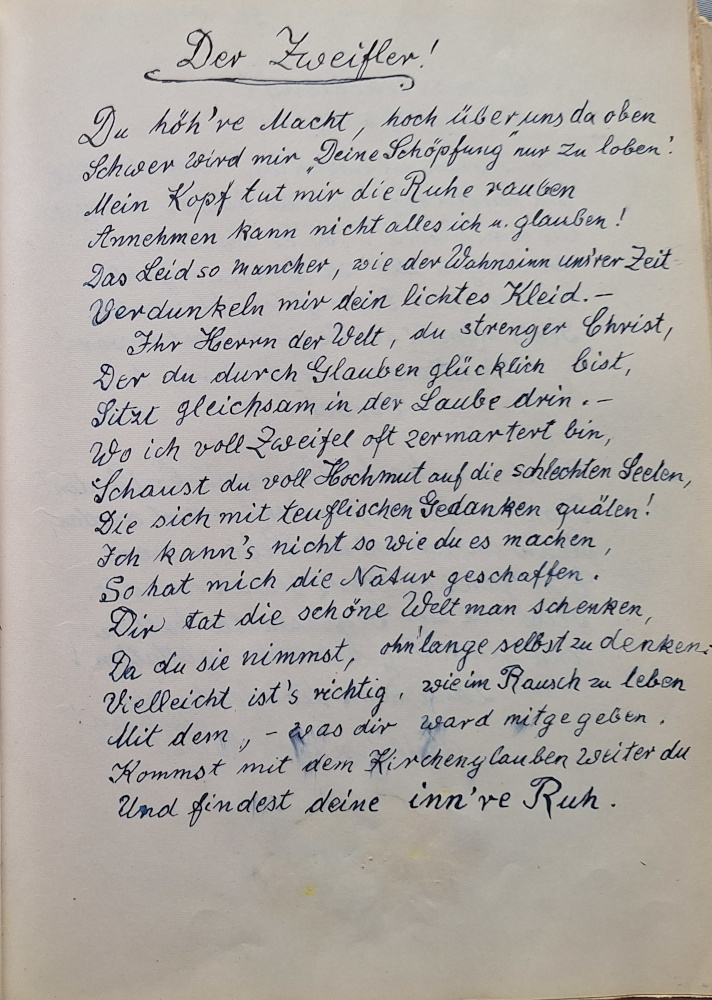 Der Zweifler!
Du höh're Macht, hoch über uns da oben
Schwer wird mir „Deine Schöpfung" nur zu loben!
Mein Kopf tut mir die Ruhe rauben
Annehmen kann nicht alles ich u. glauben!
Das Leid so mancher, wie der Wahnsinn uns'rer Zeit
Verdunkeln mir dein lichtes Kleid. –
Ihr Herrn der Welt, du strenger Christ,
Der du durch Glauben glücklich bist,
Sitzt gleichsam in der Laube drin. –
Wo ich voll Zweifel oft zermartert bin,
Schaust du voll Hochmut auf die schlechten Seelen,
Die sich mit teuflischen Gedanken quälen!
Ich kann's nicht so wie du es machen,
So hat mich die Natur geschaffen.
Dir tat die schöne Welt man schenken,
Da du sie nimmst, ohn' lange selbst zu denken.
Vielleicht ist's richtig, wie im Rausch zu leben
Mit dem, – was dir ward mitgegeben.
Kommst mit dem Kirchenglauben weiter du
Und findest deine inn're Ruh.